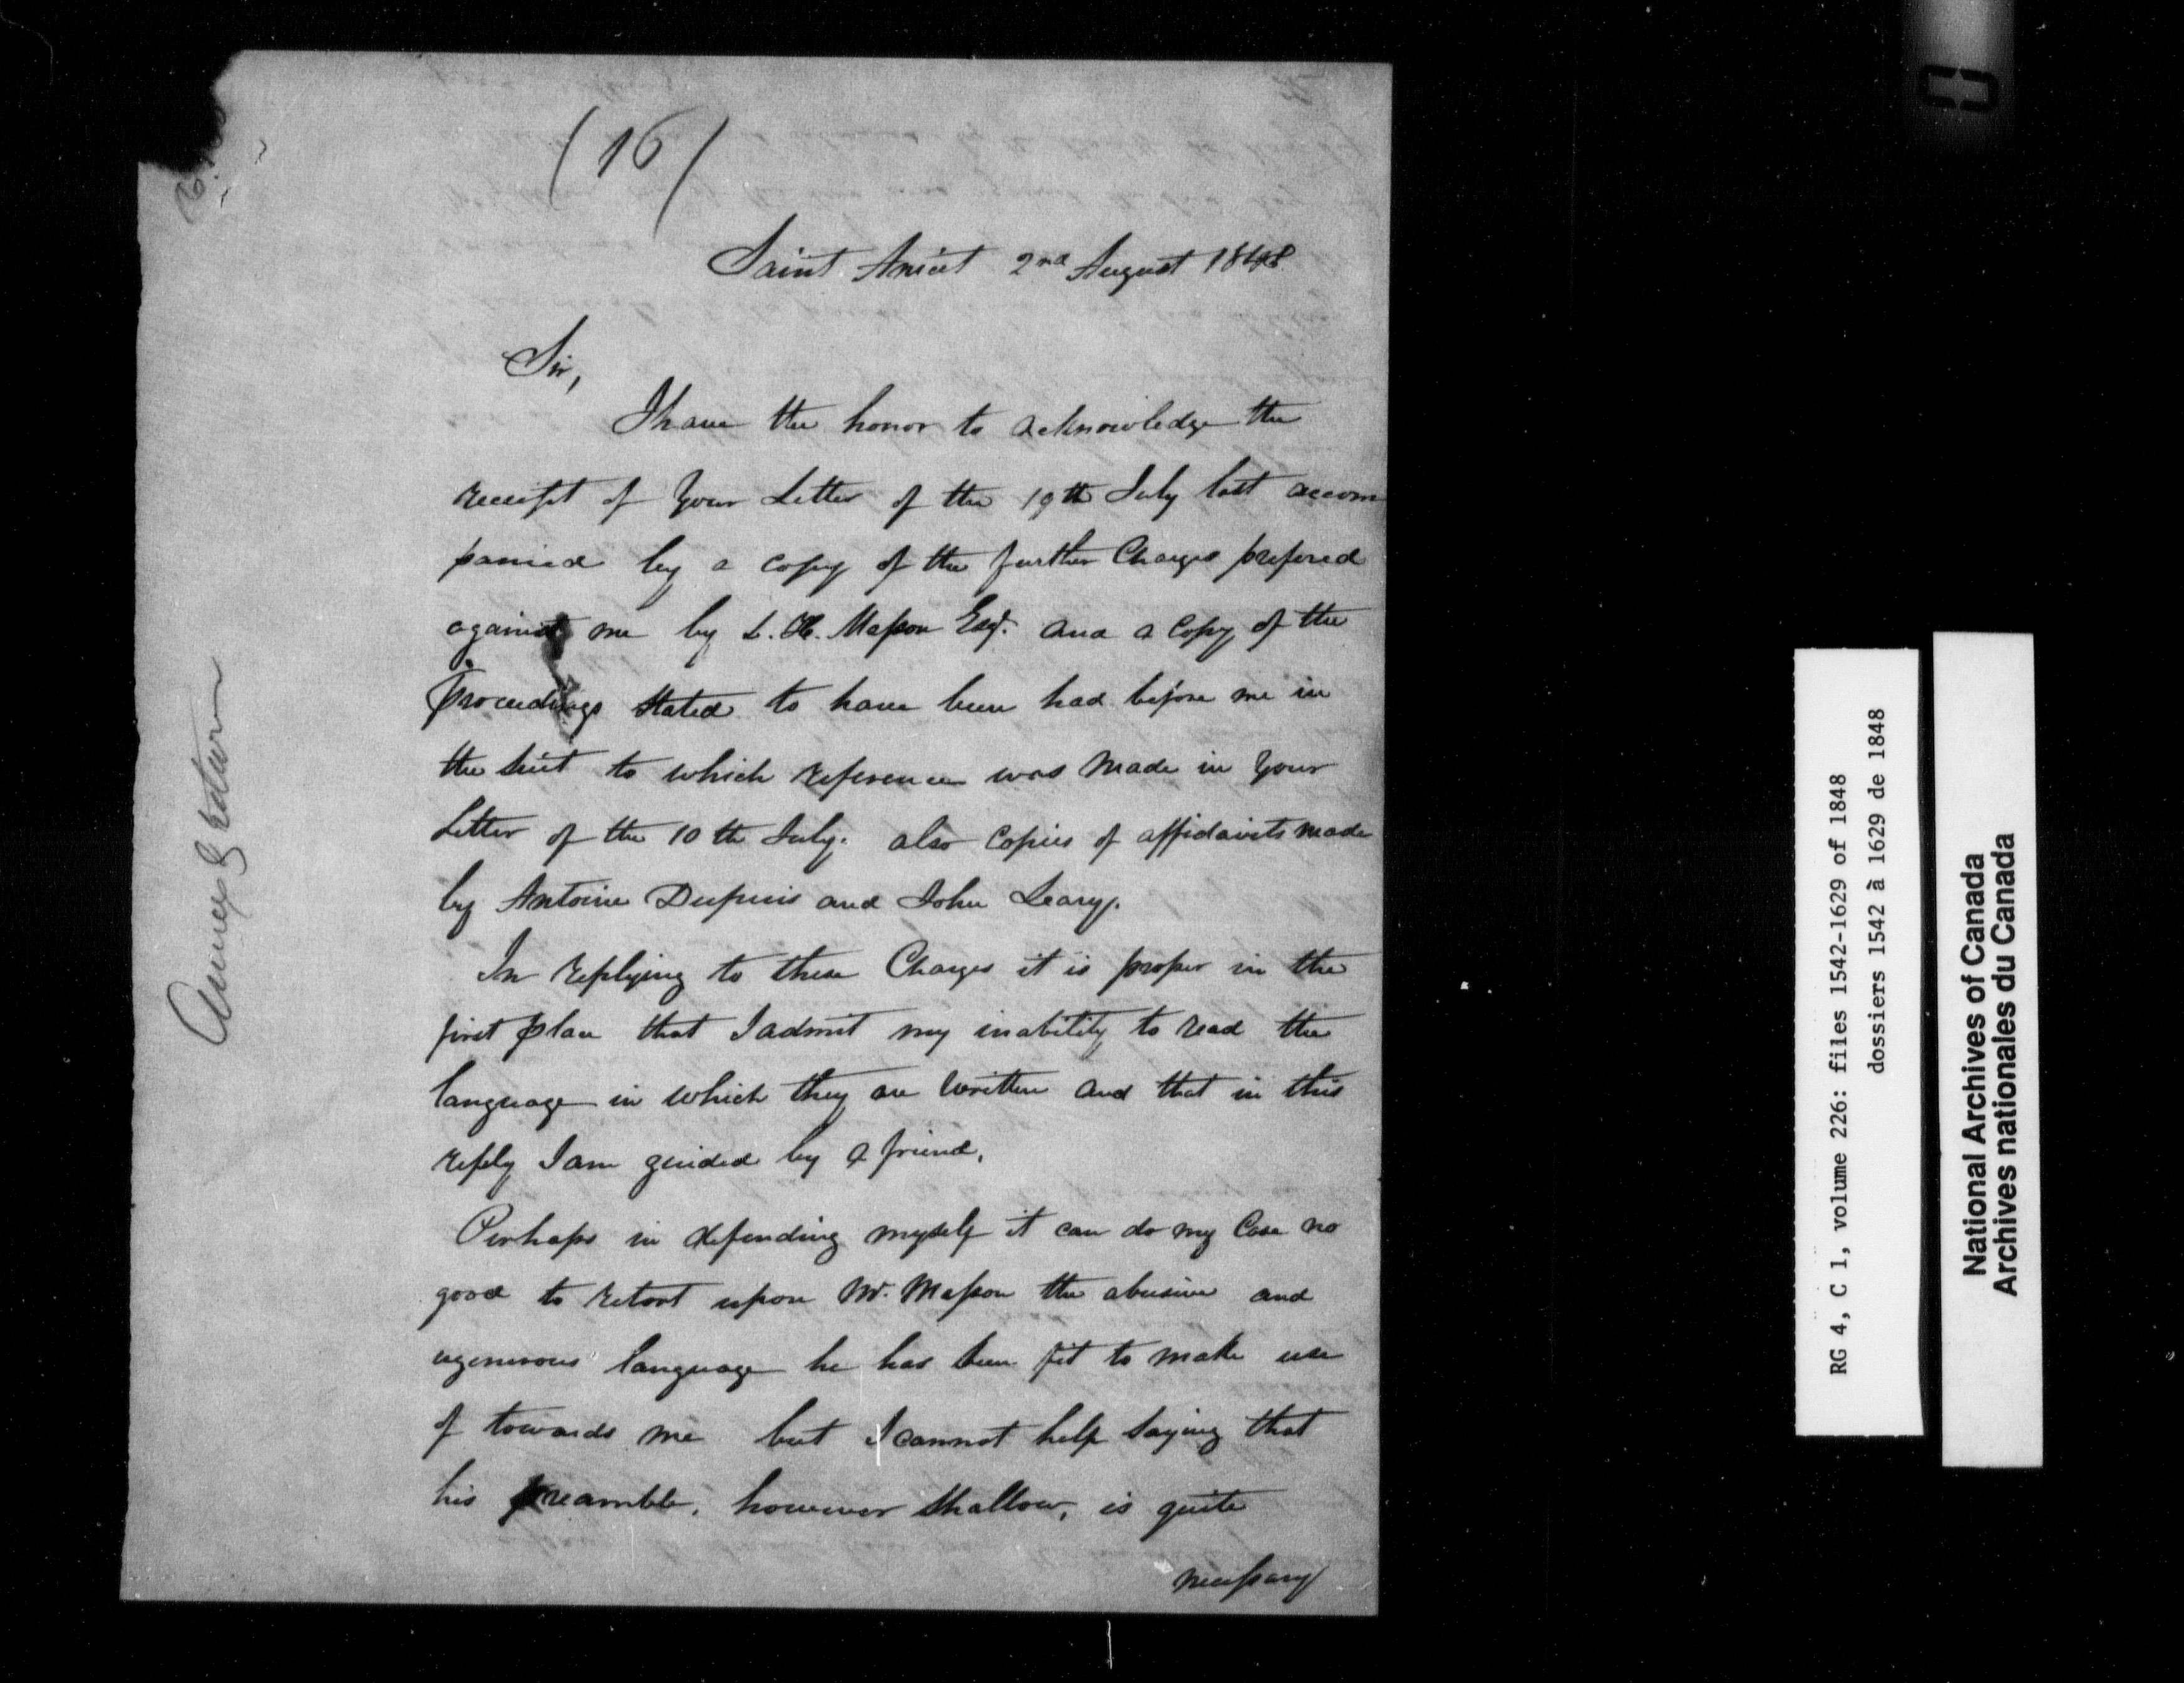 (16)
Saint Anicet 2nd August 1848
Sir,
I have the honor to acknowledge the
receipt of Your Letter of the 19th July last accom
panied by a copy of the further Charges prefered
against me by L. H. Masson Esqr. and a Copy of the
proceedings stated to have been had before me in
the suit to which reference was made in Your
Letter of the 10th July. also copies of affidavits made
by Antoine Dupuis and John Leary.
In replying to these Charges it is proper in the
first place that I admit my inability to read the
language in which they are written and that in this
reply I am guided by a friend.
Perhaps in defending myself it can do my Case no
good to retort upon Mr. Masson the abusive and
ugenerous language he has seen fit to make use
of towards me but I cannot help saying that
his preamble, however shallow, is quite
necessary
RG 4, C 1, volume 226: files 1542-1629 of 1848
dossiers 1542 à 1629 de 1848
National Archives of Canada
Archives nationales du Canada